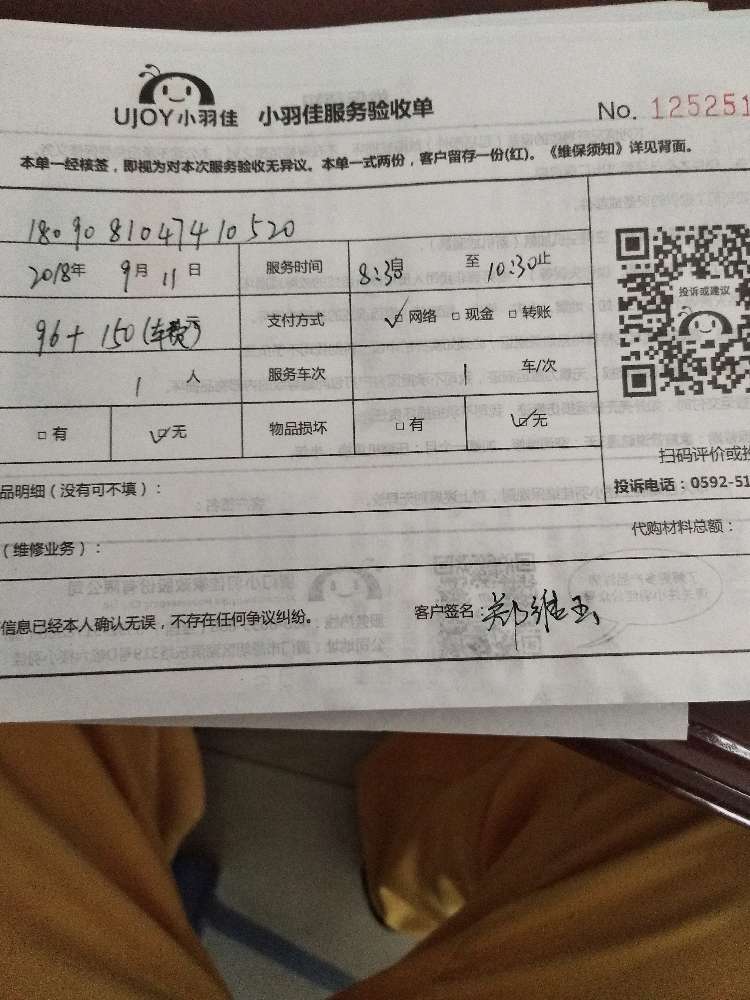 UJOY小羽佳 小羽佳服务验收单 No. 125251
本单一经核签，即视为对本次服务验收无异议。本单一式两份，客户留存一份(红)。《维保须知》详见背面。
1809081047410520
2018年 9月 11日 服务时间 8:30 至 10:30止
96+150(车费) 支付方式 网络 现金 转账
投诉或建议
1 人 服务车次 1 车/次
有 无 物品损坏 有 无
扫码评价或投
品明细（没有可不填）： 投诉电话：0592-51
（维修业务）： 代购材料总额：
信息已经本人确认无误，不存在任何争议纠纷。 客户签名：郑维玉